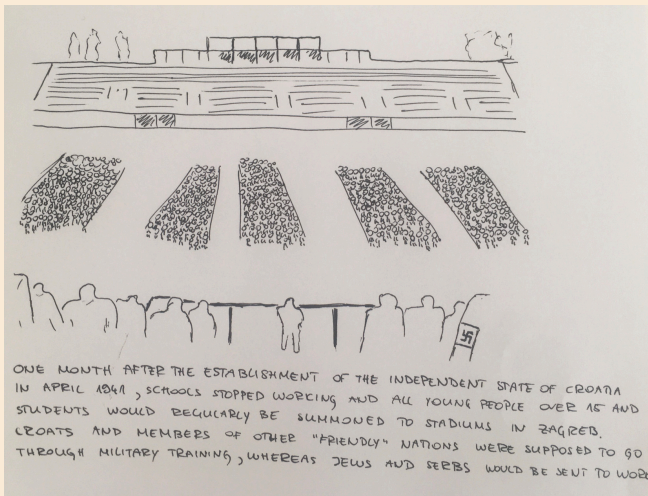 ONE MONTH AFTER THE ESTABLISHMENT OF THE INDEPENDENT STATE OF CROATIA
IN APRIL 1941, SCHOOLS STOPPED WORKING AND ALL YOUNG PEOPLE OVER 15 AND
STUDENTS WOULD REGULARLY BE SUMMONED TO STADIUMS IN ZAGREB.
CROATS AND MEMBERS OF OTHER "FRIENDLY" NATIONS WERE SUPPOSED TO GO
THROUGH MILITARY TRAINING, WHEREAS JEWS AND SERBS WOULD BE SENT TO WORK